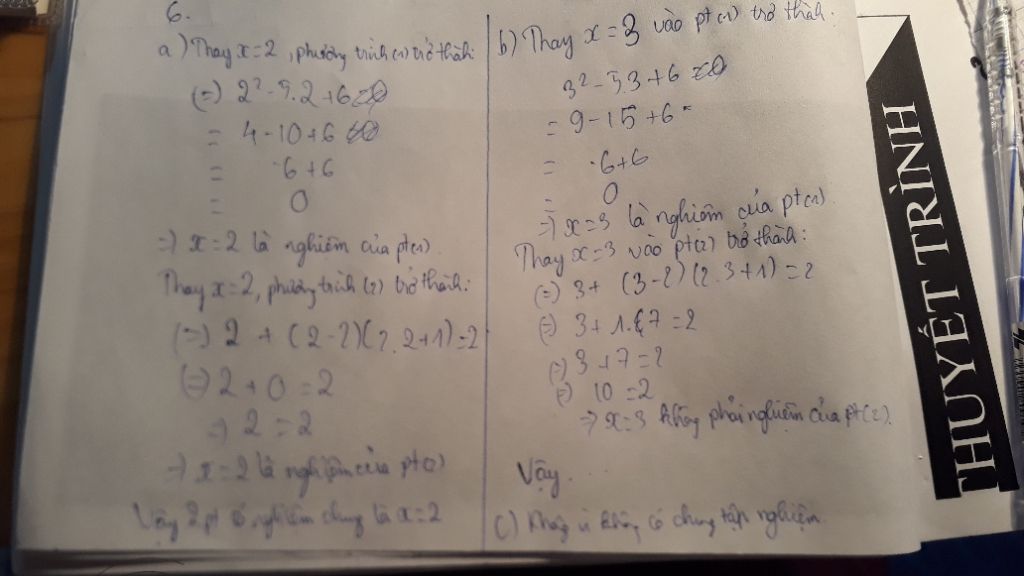 6.
a) Thay x=2, phương trình (1) trở thành:
(=) 2² - 5.2 + 6 = 0
= 4 - 10 + 6 = 0
= -6+6
= 0
=) x=2 là nghiệm của pt(1).
Thay x=2, phương trình (2) trở thành:
(=) 2 + (2-2)(2.2+1)=2
(=) 2 + 0 = 2
=) 2 = 2
=) x=2 là nghiệm của pt(2)
Vậy 2 pt có nghiệm chung là x=2
b) Thay x=3 vào pt(1) trở thành:
3² - 5.3 + 6 = 0
= 9 - 15 + 6 =
= -6+6
= 0
=) x=3 là nghiệm của pt(1).
Thay x=3 vào pt(2) trở thành:
(=) 3+ (3-2)(2.3+1)=2
(=) 3+1.7=2
(=) 3+7=2
(=) 10=2
=) x=3 không phải nghiệm của pt(2).
Vậy...
c) không có chung tập nghiệm.
THUYẾT TRÌNH